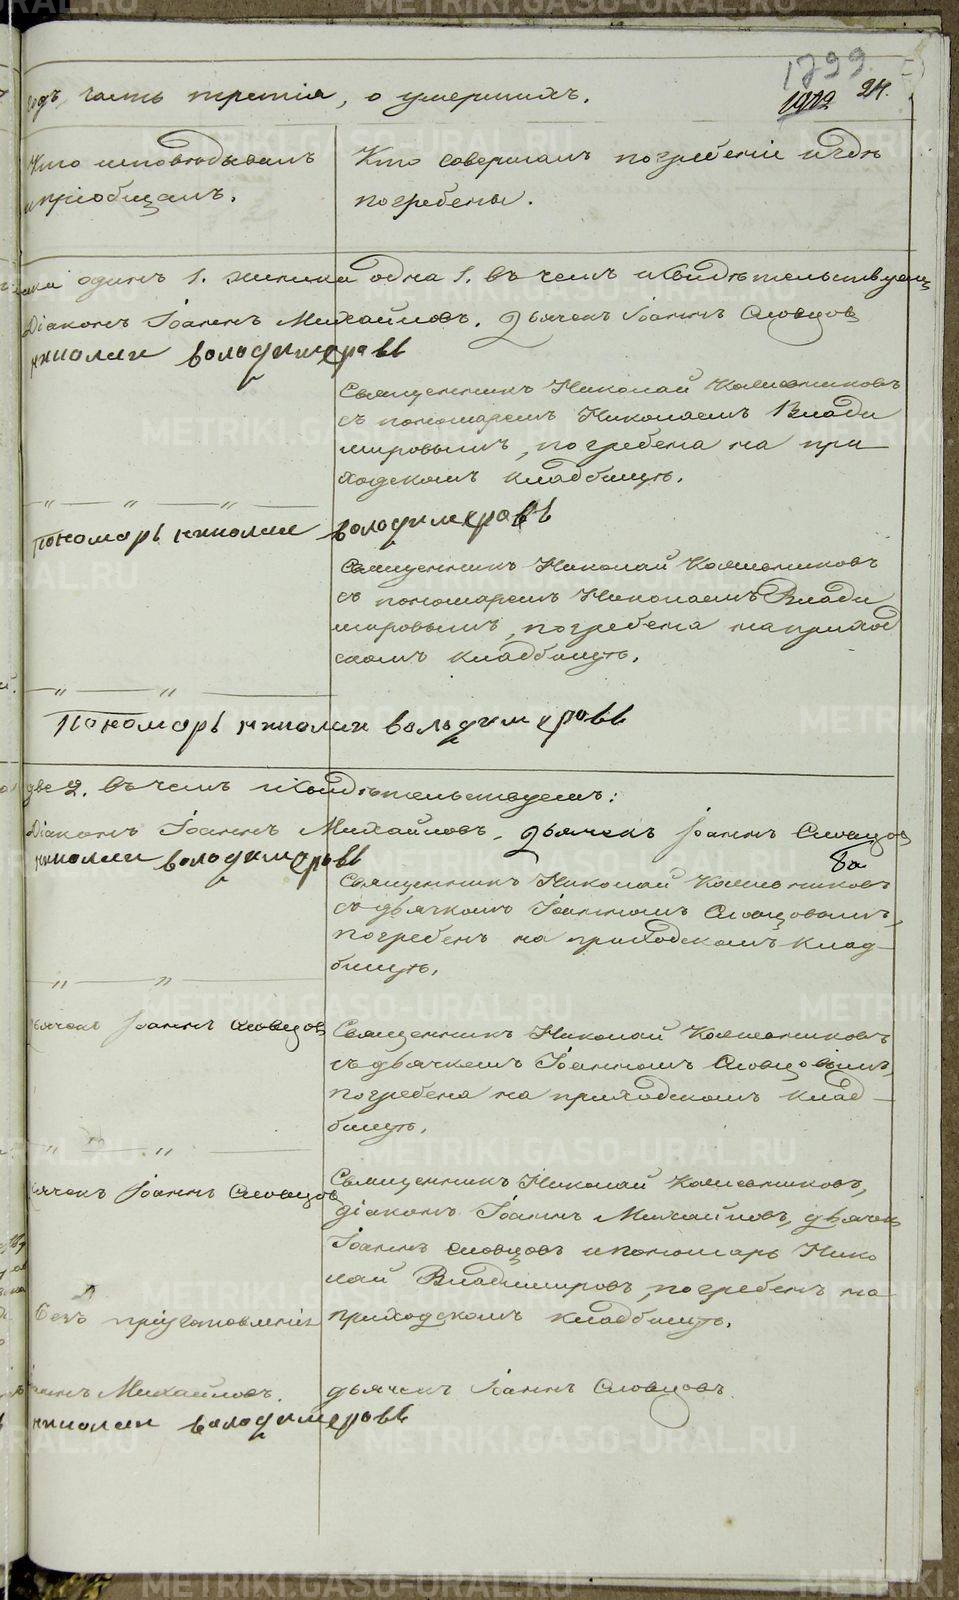 1799.
1912 24.
годъ, часть третія, о умершихъ.
Кто исповѣдывалъ
и пріобщалъ.
Кто совершалъ погребеніе и гдѣ
погребены.
одинъ 1. женска одна 1. въ чемъ и свидѣтельствуемъ
Діаконъ Іоаннъ Михайловъ. Дьячекъ Іоаннъ Словцовъ
николаи володимеровъ
Священникъ Николай
съ пономаремъ Николаемъ Влади
мировымъ, погребена на при
ходскомъ кладбищѣ.
— „ — „ — „ —
Пономарь николаи володимеровъ
Священникъ Николай
съ пономаремъ Николаемъ Влади
мировымъ, погребена на приход
скомъ кладбищѣ.
— „ — „ —
Пономарь николаи володимеровъ
две 2. въ чемъ и свидѣтельствуемъ:
Діаконъ Іоаннъ Михайловъ. Дьячекъ Іоаннъ Словцовъ
николаи володимеровъ
Священникъ Николай
съ дьячкомъ Іоанномъ Словцовымъ,
погребенъ на приходскомъ клад-
бищѣ.
— „ — „ —
дьячекъ Іоаннъ Словцовъ
Священникъ Николай
съ дьячкомъ Іоанномъ Словцовымъ,
погребена на приходскомъ клад-
бищѣ.
„ — „ —
дьячекъ Іоаннъ Словцовъ
Священникъ Николай
діаконъ Іоаннъ Михайловъ, дьячекъ
Іоаннъ Словцовъ и пономарь Нико
лай Владимировъ, погребенъ на
Безъ пріуготовленія
приходскомъ кладбищѣ.
Іоаннъ Михайловъ. дьячекъ Іоаннъ Словцовъ.
николаи володимеровъ
METRIKI.GASO-URAL.RU